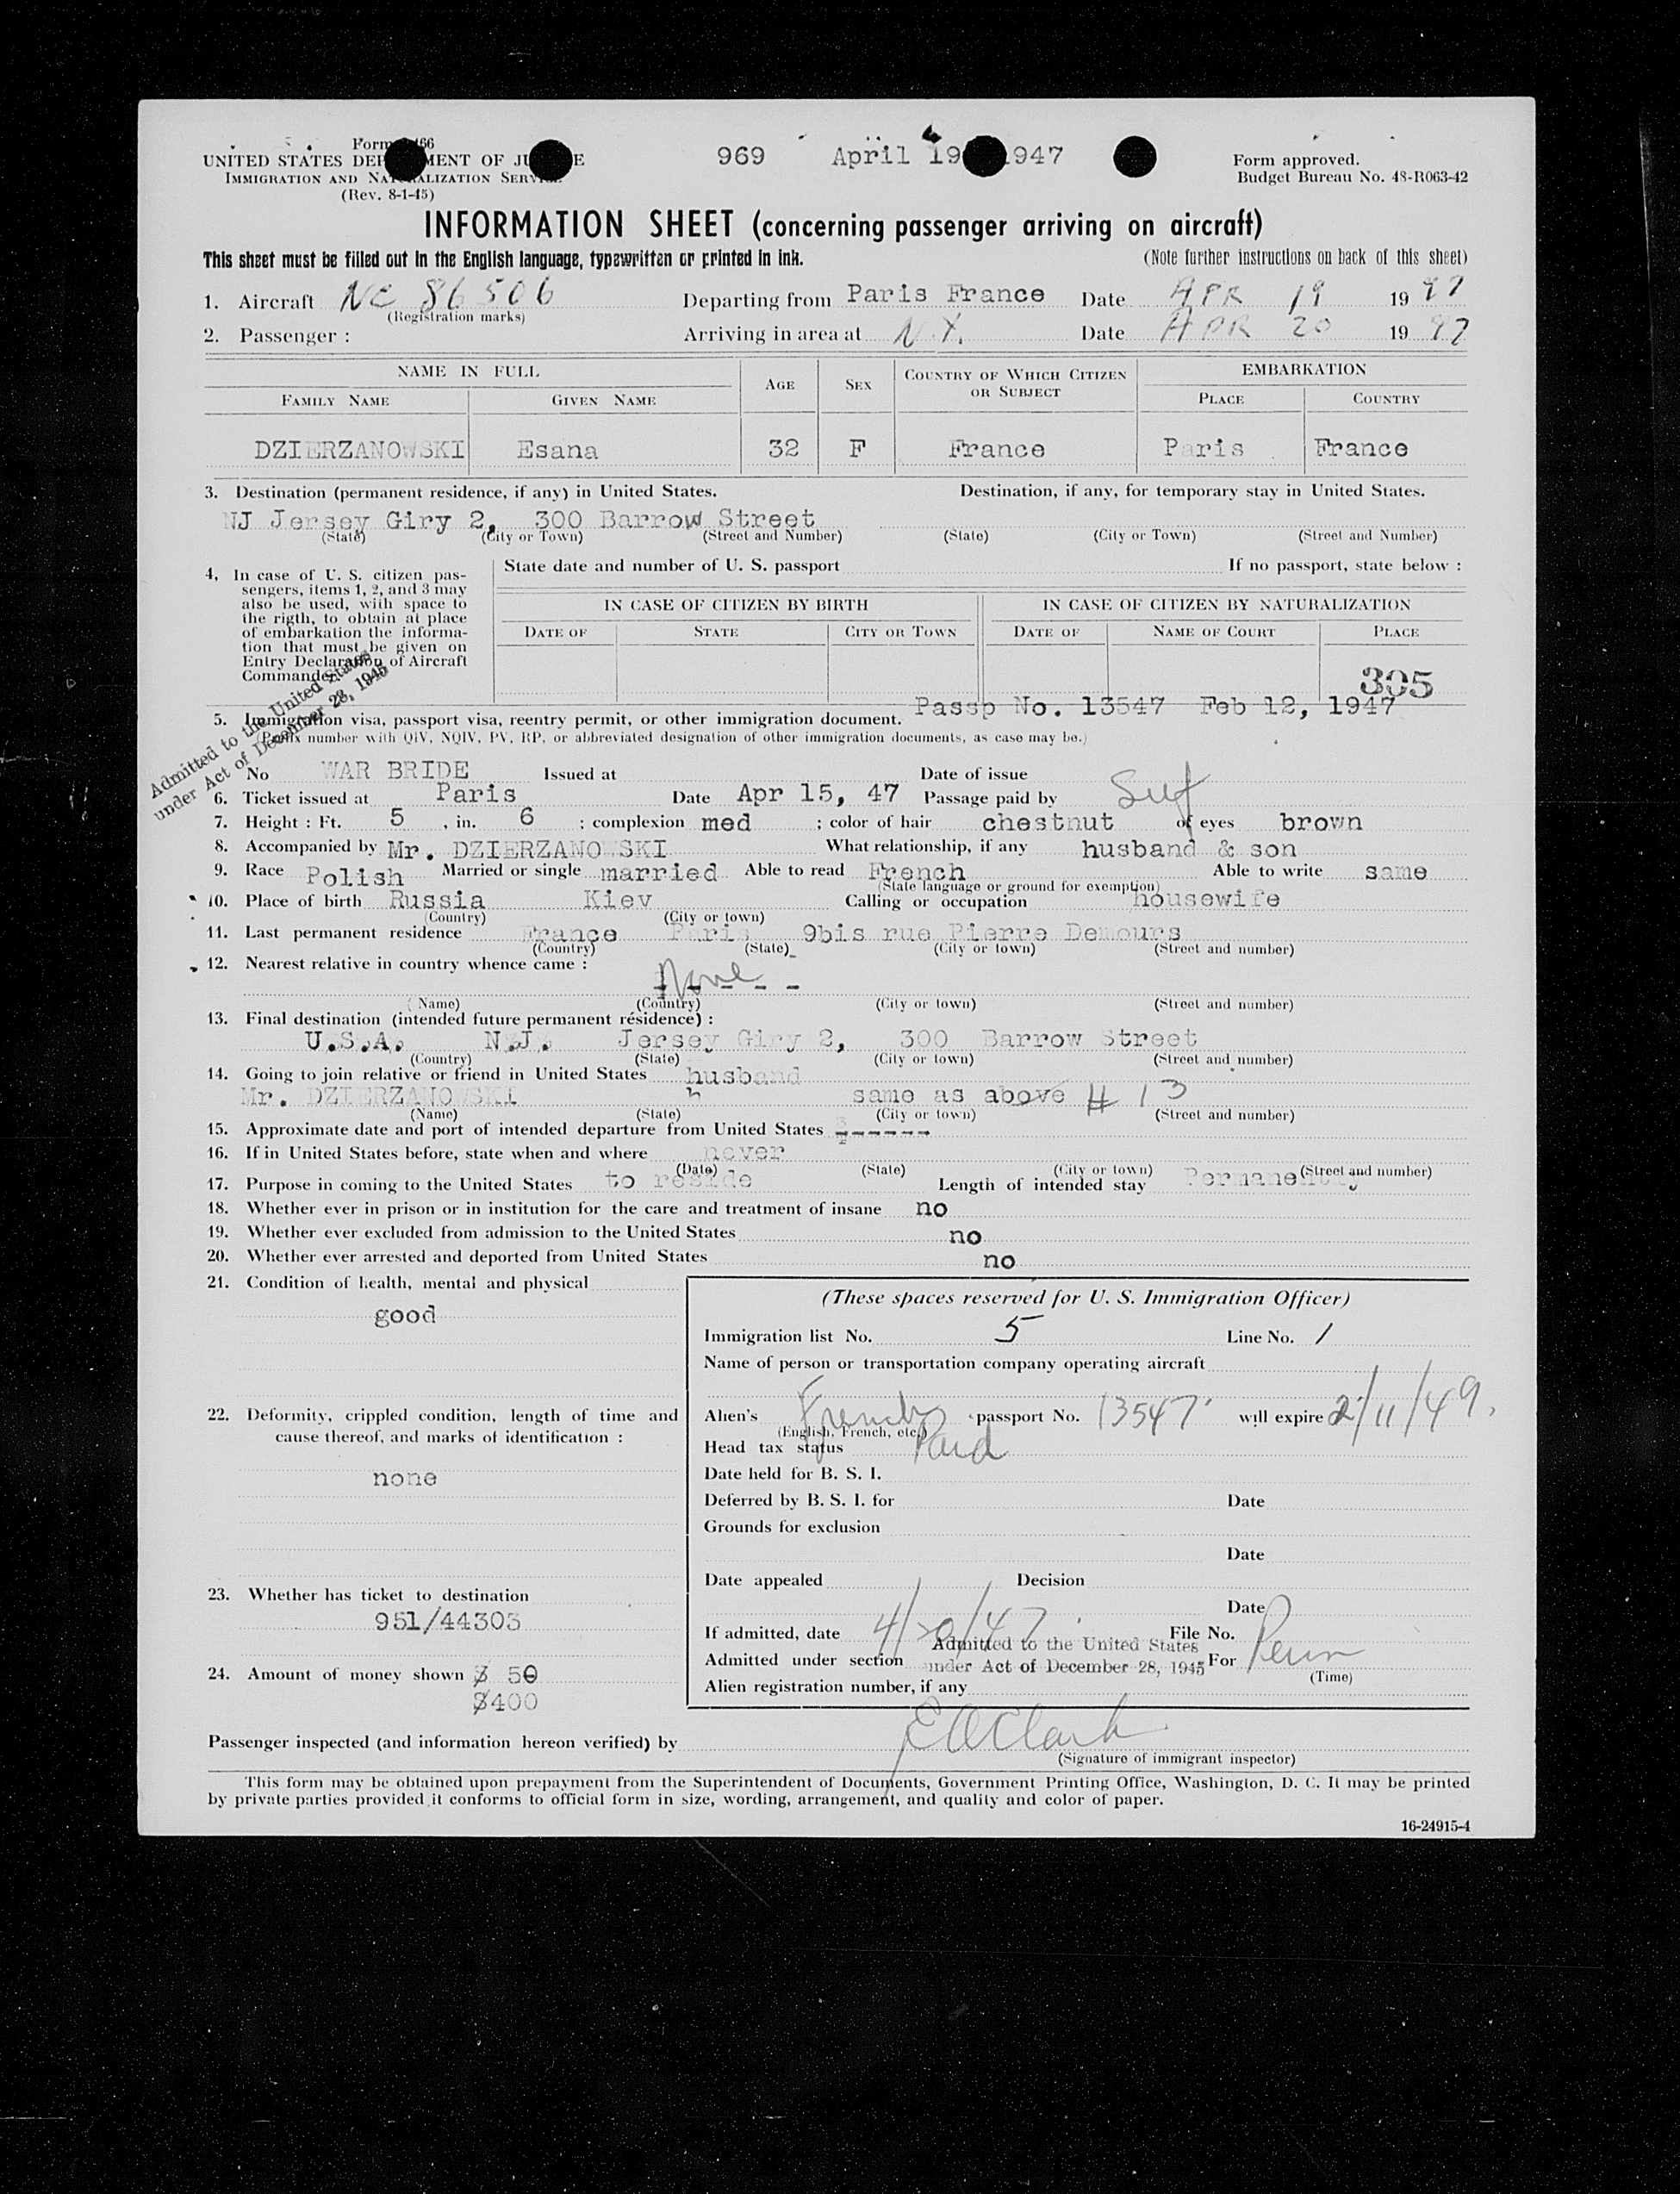 Form 66
UNITED STATES DEP MENT OF JU E
IMMIGRATION AND NA ALIZATION SERV
(Rev. 8-1-45)
969 April 19 1947
Form approved.
Budget Bureau No. 43-R063-42
INFORMATION SHEET (concerning passenger arriving on aircraft)
This sheet must be filled out in the English language, typewritten or printed in ink. (Note further instructions on back of this sheet)
1. Aircraft NC 86506 Departing from Paris France Date APR 19 1947
(Registration marks)
2. Passenger : Arriving in area at N.Y. Date APR 20 1947
NAME IN FULL AGE SEX COUNTRY OF WHICH CITIZEN OR SUBJECT EMBARKATION
FAMILY NAME GIVEN NAME PLACE COUNTRY
DZIERZANOWSKI Esana 32 F France Paris France
3. Destination (permanent residence, if any) in United States. Destination, if any, for temporary stay in United States.
NJ Jersey Giry 2, 300 Barrow Street
(State) (City or Town) (Street and Number) (State) (City or Town) (Street and Number)
4, In case of U. S. citizen pas-
sengers, items 1, 2, and 3 may
also be used, with space to
the rigth, to obtain at place
of embarkation the informa-
tion that must be given on
Entry Declaration of Aircraft
Commander.
State date and number of U. S. passport If no passport, state below :
IN CASE OF CITIZEN BY BIRTH IN CASE OF CITIZEN BY NATURALIZATION
DATE OF STATE CITY OR TOWN DATE OF NAME OF COURT PLACE
305
Admitted to the United States
under Act of December 28, 1945
5. Immigration visa, passport visa, reentry permit, or other immigration document. Passp No. 13547 Feb 12, 1947
(Prefix number with QIV, NQIV, PV, RP, or abbreviated designation of other immigration documents, as case may be.)
No WAR BRIDE Issued at Date of issue
6. Ticket issued at Paris Date Apr 15, 47 Passage paid by Self
7. Height : Ft. 5 , in. 6 ; complexion med ; color of hair chestnut of eyes brown
8. Accompanied by Mr. DZIERZANO SKI What relationship, if any husband & son
9. Race Polish Married or single married Able to read French Able to write same
(State language or ground for exemption)
10. Place of birth Russia Kiev Calling or occupation housewife
(Country) (City or town)
11. Last permanent residence France Paris 9bis rue Pierre Demours
(Country) (State) (City or town) (Street and number)
12. Nearest relative in country whence came :
None
(Name) (Country) (City or town) (Street and number)
13. Final destination (intended future permanent résidence) :
U.S.A. N.J. Jersey Giry 2, 300 Barrow Street
(Country) (State) (City or town) (Street and number)
14. Going to join relative or friend in United States husband
Mr. DZIERZANO SKI same as above # 13
(Name) (State) (City or town) (Street and number)
15. Approximate date and port of intended departure from United States ------
16. If in United States before, state when and where never
(Date) (State) (City or town) (Street and number)
17. Purpose in coming to the United States to reside Length of intended stay Permanently
18. Whether ever in prison or in institution for the care and treatment of insane no
19. Whether ever excluded from admission to the United States no
20. Whether ever arrested and deported from United States no
21. Condition of health, mental and physical
good
22. Deformity, crippled condition, length of time and
cause thereof, and marks of identification :
none
23. Whether has ticket to destination
951/44303
24. Amount of money shown $ 50
$400
(These spaces reserved for U. S. Immigration Officer)
Immigration list No. 5 Line No. 1
Name of person or transportation company operating aircraft
Alien's French passport No. 13547 will expire 2/11/49.
(English, French, etc.)
Head tax status Paid
Date held for B. S. I.
Deferred by B. S. I. for Date
Grounds for exclusion
Date
Date appealed Decision
Date
If admitted, date 4/20/47 File No.
Admitted under section Admitted to the United States
under Act of December 28, 1945 For Perm
(Time)
Alien registration number, if any
Passenger inspected (and information hereon verified) by E A Clark
(Signature of immigrant inspector)
This form may be obtained upon prepayment from the Superintendent of Documents, Government Printing Office, Washington, D. C. It may be printed
by private parties provided it conforms to official form in size, wording, arrangement, and quality and color of paper.
16-24915-4